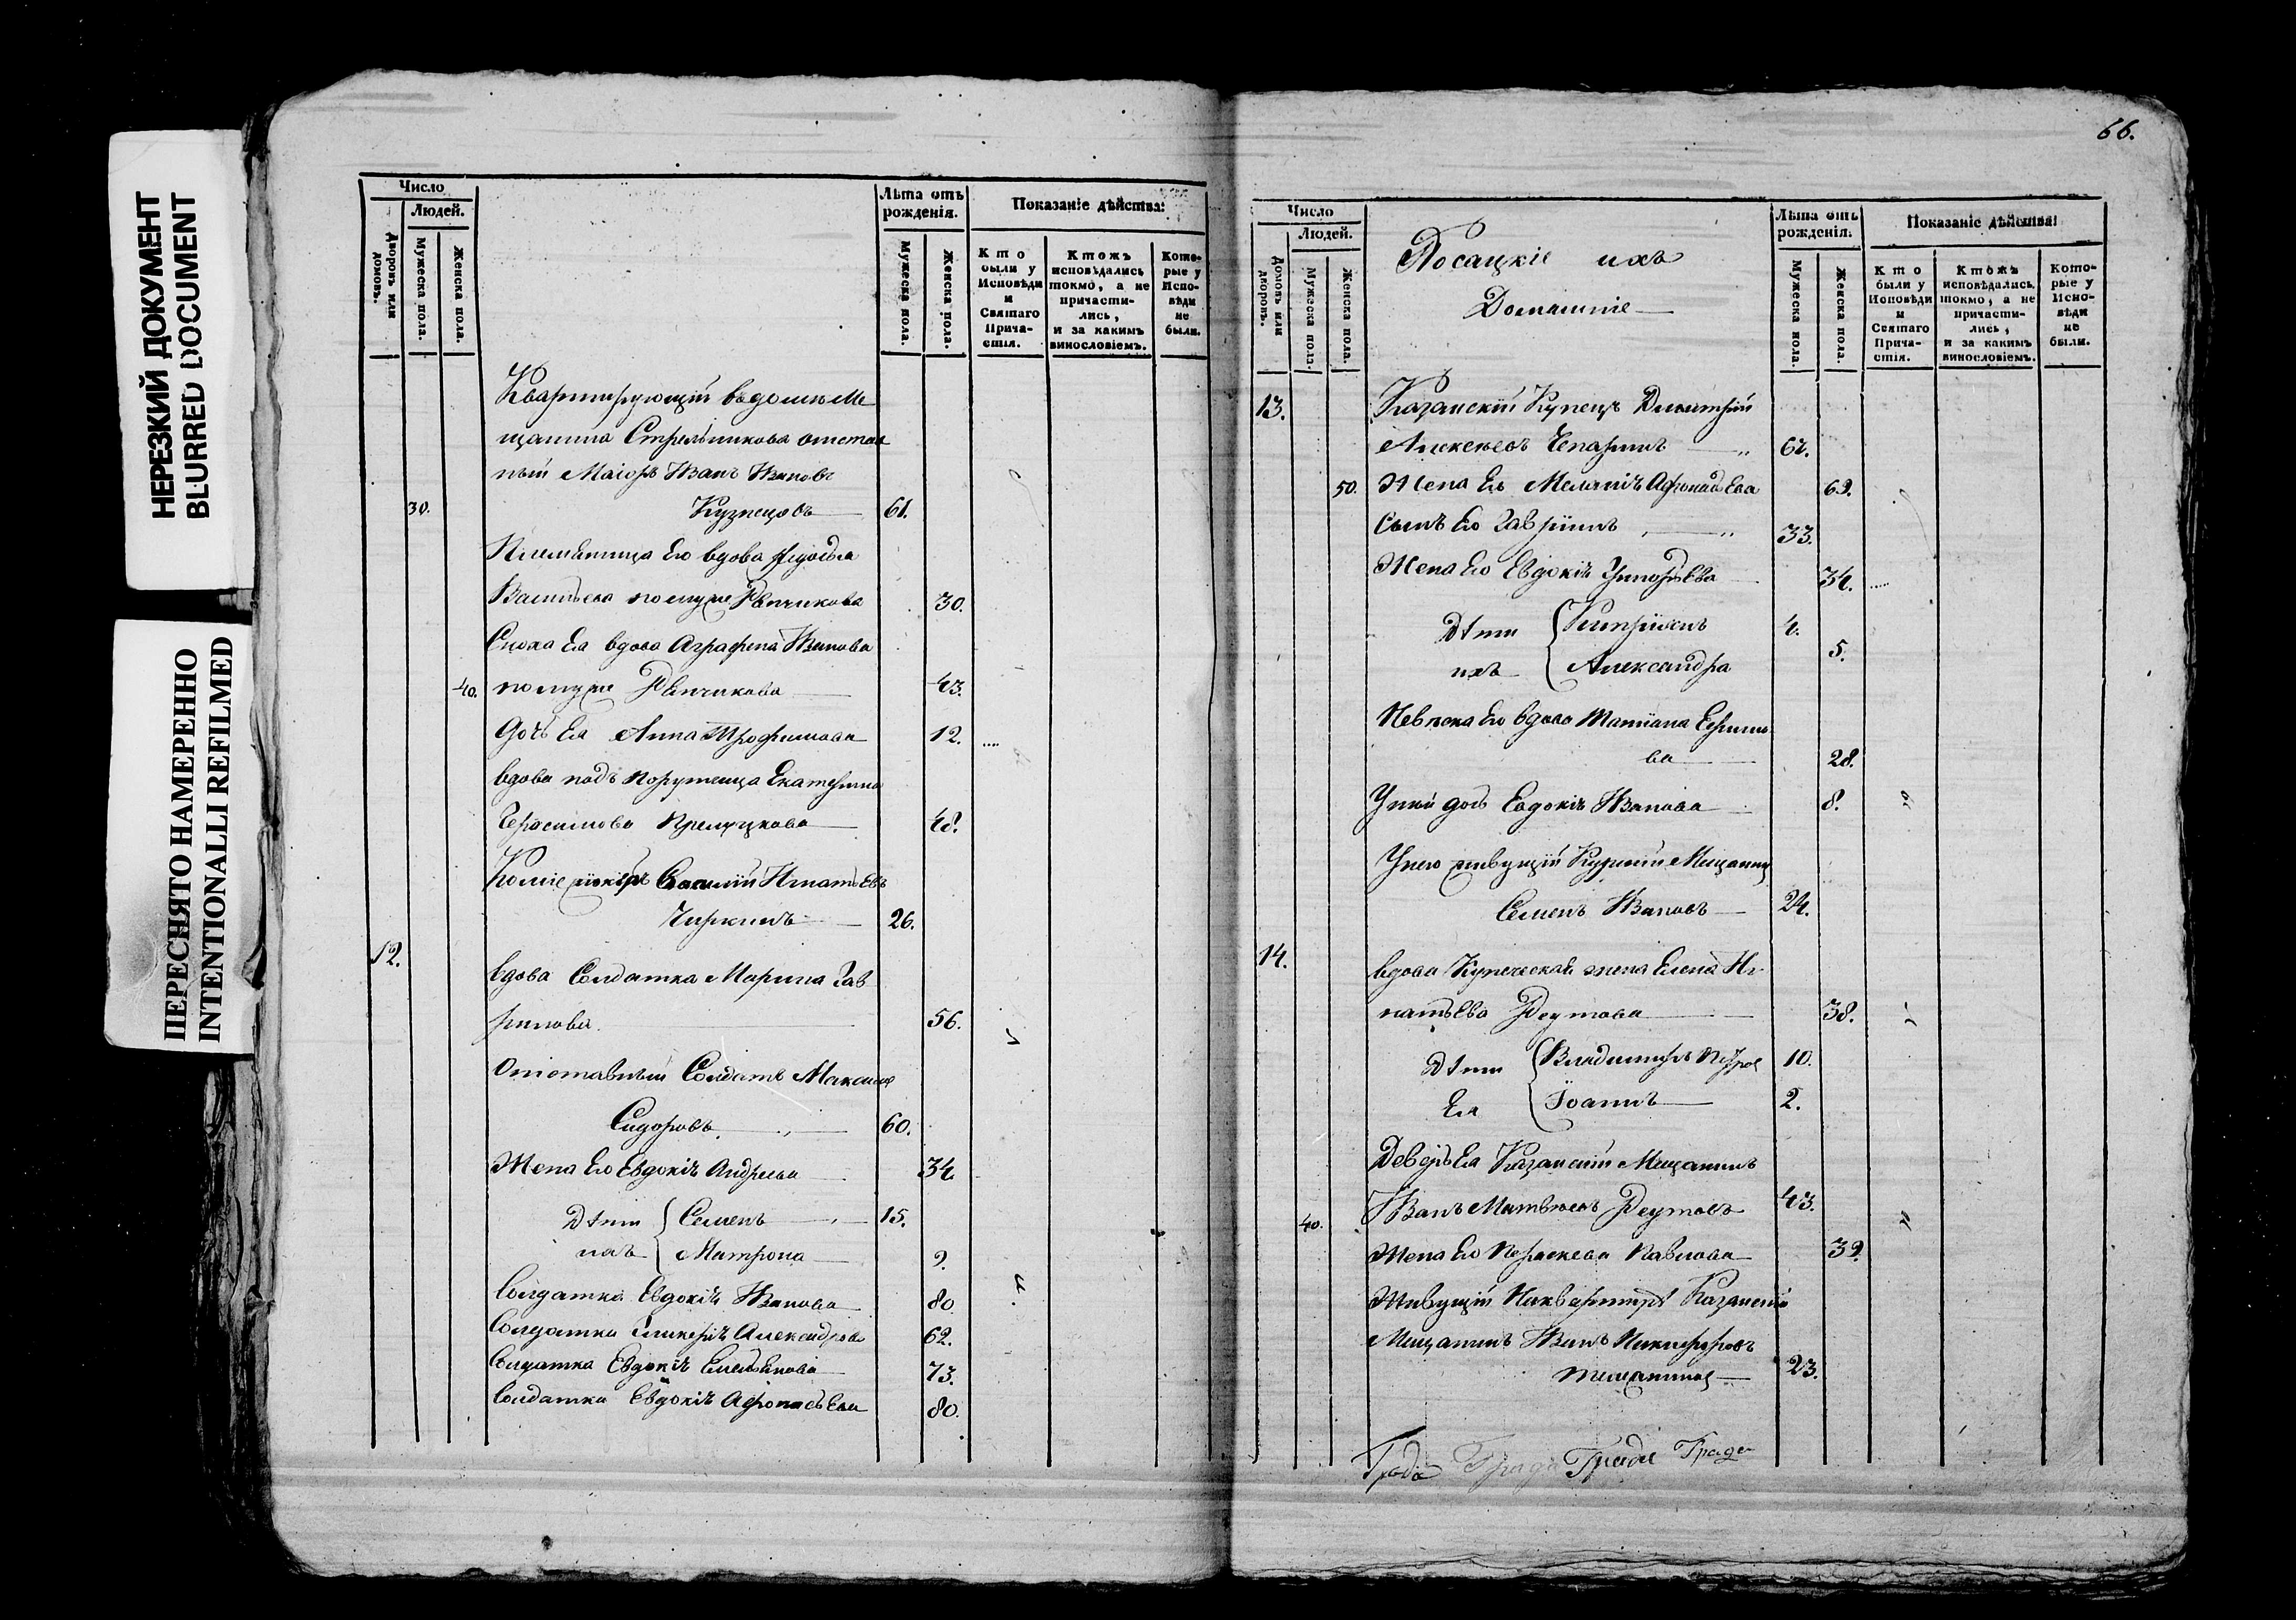 НЕРЕЗКИЙ ДОКУМЕНТ
BLURRED DOCUMENT
ПЕРЕСНЯТО НАМЕРЕННО
INTENTIONALLI REFILMED
Число
Людей.
Дворовъ или домовъ.
Мужеска пола.
Женска пола.
Лѣта отъ рожденія.
Мужеска пола.
Женска пола.
Показаніе дѣйства:
Кто были у Исповѣди и Святаго Прича-стія.
Ктожъ исповѣдались токмо, а не причасти-лись, и за какимъ винословіемъ.
Кото-рые у Испо-вѣди не были.
Квартирующій въ домѣ Ме
щанина Стрельникова отстав
ный Маіоръ Иванъ Ивановъ
30. Кузнецовъ 61.
Племянница Его вдова Федосья
Васильева по мужѣ 30.
Сноха Ея вдова Аграфена Иванова
40. по мужѣ 43.
дочь Ея Анна Трофимова 12.
вдова подъ порутчица Екатерина
Герасимова 48.
Василій Игнатьевъ
Чиркинъ 26.
12. вдова Солдатка Марина Гав
рилова 56.
Отставный Солдатъ Максимъ
Сидоровъ 60.
Жена Его Евдокія Андреева 34
Дѣти { Семенъ 15.
ихъ { Матрона 9.
Солдатка Евдокія Иванова 80
Солдатка Гликерія Александрова 62.
Солдатка Евдокія Емельянова 73.
Солдатка Евдокія Афонасьева 80.
66.
Число
Людей.
Домовъ или дворовъ.
Мужеска пола.
Женска пола.
Посацкіе ихъ
Домашніе
Лѣта отъ рожденія.
Мужеска пола.
Женска пола.
Показаніе дѣйства:
Кто были у Исповѣди и Святаго Прича-стія.
Ктожъ исповѣдались, токмо, а не причасти-лись, и за какимъ винословіемъ.
Кото-рые у Испо-вѣди не были.
13. Казанскій Купецъ Димитрій
Алексѣевъ Чепаринъ 62.
50. Жена Его Меланія Афонасьева 69.
Сынъ Его Гавріилъ 33.
Жена Его Евдокія Григорьева 34.
Дѣти { 4.
ихъ { Александра 5.
Невѣска Его вдова Татіана Ефимо
ва 28.
У ней дочь Евдокія Иванова 8.
У него живущій Мещанинъ
Семенъ Ивановъ 24.
14. вдова Купеческая жена Елена Иг
натьева Реутова 38.
Дѣти { Владимиръ Петровъ 10.
Ея { Іоаннъ 2.
Деверь Ея Казанскій Мещанинъ
40. Иванъ Матвѣевъ Реутовъ 43.
Жена Его Параскева Павлова 39.
Живущій На квартирѣ Казанскій
Мещанинъ Иванъ Никифоровъ
23.
Града Града Граде Граде